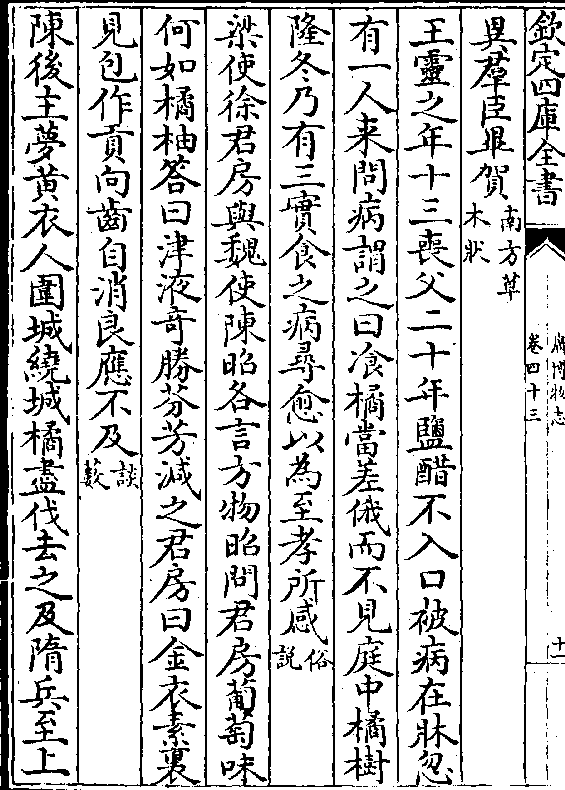 欽定四庫全書
廣博物志
卷四十三
十一
異羣臣畢賀南方草木狀
王靈之年十三喪父二十年鹽醋不入口被病在牀忽
有一人来問病謂之曰飡橘當差俄而不見庭中橘樹
隆冬乃有三實食之病尋愈以為至孝所感俗説
梁使徐君房與魏使陳昭各言方物昭問君房葡萄味
何如橘柚答曰津液竒勝芬芳減之君房曰金衣素裏
見包作貢向齒自消良應不及談藪
陳後主夢黄衣人圍城繞城橘盡伐去之及隋兵至上